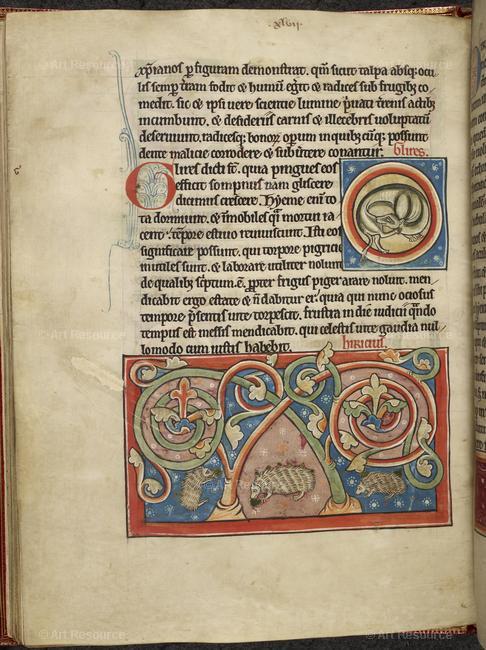 ·xlvij·
xp̄ianos ꝑ figuram demonstrat. qm̄ sicut talpa absq; ocu
lis semꝑ t̄ram fodit ⁊ humū eḡit ⁊ radices sub frugibꝫ co
medit. sic ⁊ ip̄i vere scientie lumine p̓uati t̓renis actibꝫ
incumbunt. ⁊ desideriis carnis ⁊ illecebris voluptatū
deseruiunt. radicesq; bonoꝝ opeꝝ in quibꝫcūq; possunt
dente malicie corrodere ⁊ subu̓tere conantur. Glires.
Glires dicti st̄. quia pingues eos
efficit sompnus nam gliscere
dicimus crescere. Hyeme eni̅ to
ta dormiunt. ⁊ īmobiles q̓si mortui ia
cent. tēpore estiuo reuiuiscunt. Isti eos
significare possunt. qui torpore pigricie
inutiles sunt. ⁊ laborare utiliter nolunt
de qualibꝫ sc̓ptum ē. ꝓpter frigus piger arare noluit. men
dicabit ergo estate ⁊ n̄ dabitur ei. quia qui nunc ociosus
tempore p̓sentis uite torpescit. frustra in die iudicii q̄ndo
tempus est messis mendicabit. qui celestis uite gaudia nul
lomodo cum iustis habebit. hiricius.
© Art Resource
© Art Resource
© Art Resource
© Art Resource
© Art Resource
© Art Resource